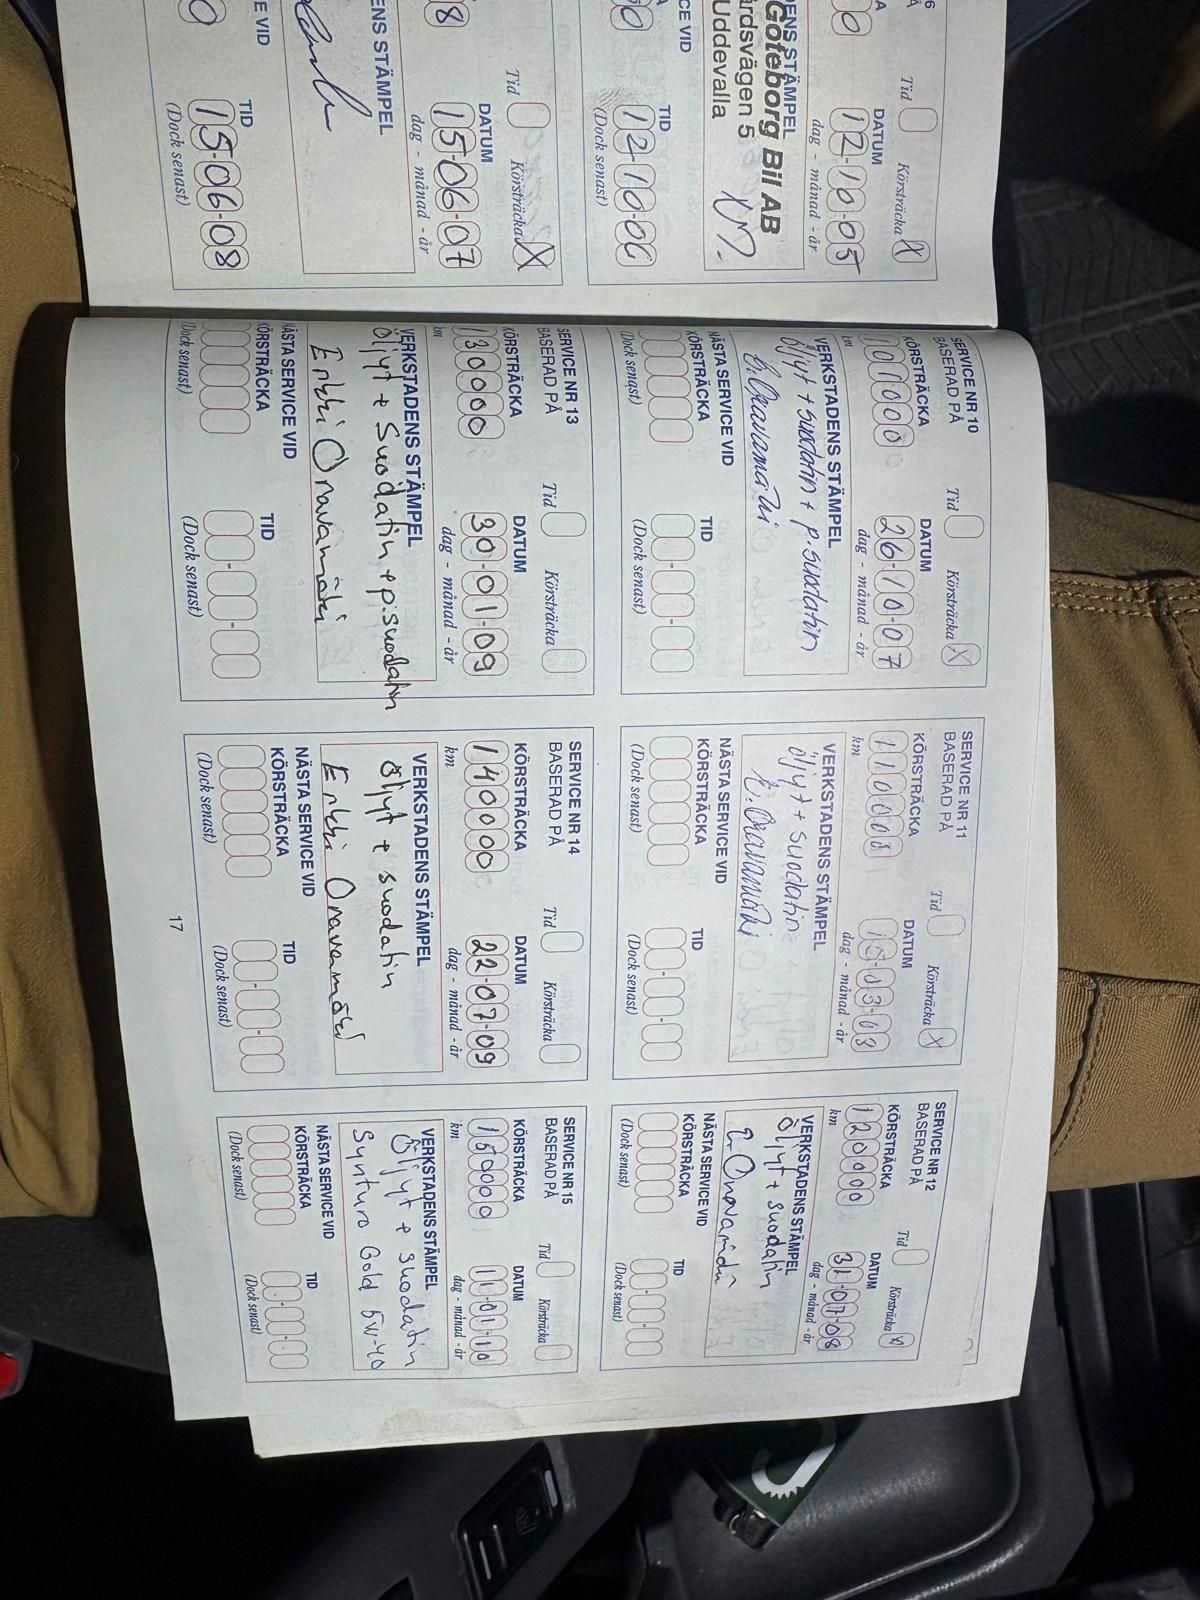 6
Å
Tid Körsträcka X
DATUM
0 12-10-05
dag - månad - år
DENS STÄMPEL
Göteborg Bil AB
årdsvägen 5
Uddevalla
CE VID
TID
0 12-10-06
(Dock senast)
Tid Körsträcka X
DATUM
8 15-06-07
dag - månad - år
ENS STÄMPEL
E VID
TID
0 15-06-08
(Dock senast)
SERVICE NR 10
BASERAD PÅ Tid Körsträcka X
KÖRSTRÄCKA DATUM
101000 26-10-07
km dag - månad - år
VERKSTADENS STÄMPEL
Öljyt + suodatin + p.suodatin
E. Oravamäki
NÄSTA SERVICE VID
KÖRSTRÄCKA TID
(Dock senast) (Dock senast)
SERVICE NR 11
BASERAD PÅ Tid Körsträcka X
KÖRSTRÄCKA DATUM
110008 15-03-08
km dag - månad - år
VERKSTADENS STÄMPEL
öljyt + suodatin
E. Oravamäki
NÄSTA SERVICE VID
KÖRSTRÄCKA TID
(Dock senast) (Dock senast)
SERVICE NR 12
BASERAD PÅ Tid Körsträcka X
KÖRSTRÄCKA DATUM
120000 31-07-08
km dag - månad - år
VERKSTADENS STÄMPEL
Öljyt + suodatin
E. Oravamäki
NÄSTA SERVICE VID
KÖRSTRÄCKA TID
(Dock senast) (Dock senast)
SERVICE NR 13
BASERAD PÅ Tid Körsträcka
KÖRSTRÄCKA DATUM
130000 30-01-09
km dag - månad - år
VERKSTADENS STÄMPEL
Öljyt + Suodatin + p.suodatin
Erkki Oravamäki
NÄSTA SERVICE VID
KÖRSTRÄCKA TID
(Dock senast) (Dock senast)
SERVICE NR 14
BASERAD PÅ Tid Körsträcka
KÖRSTRÄCKA DATUM
140000 22-07-09
km dag - månad - år
VERKSTADENS STÄMPEL
Öljyt + suodatin
Erkki Oravamäki
NÄSTA SERVICE VID
KÖRSTRÄCKA TID
(Dock senast) (Dock senast)
SERVICE NR 15
BASERAD PÅ Tid Körsträcka
KÖRSTRÄCKA DATUM
150000 11-01-10
km dag - månad - år
VERKSTADENS STÄMPEL
Öljyt + suodatin
Synturo Gold 5W-40
NÄSTA SERVICE VID
KÖRSTRÄCKA TID
(Dock senast) (Dock senast)
17